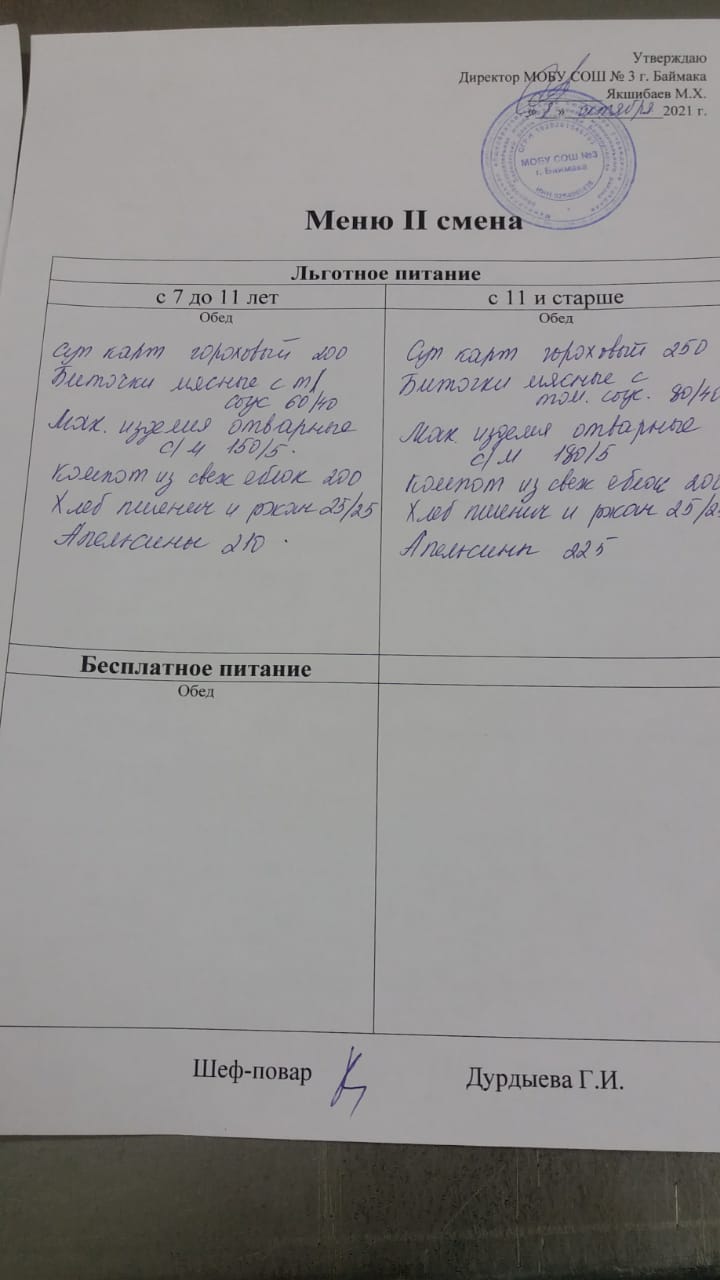 Утверждаю
Директор МОБУ СОШ № 3 г. Баймака
Якшибаев М.Х.
октября 2021 г.
МОБУ СОШ №3
г. Баймака
Меню II смена
Льготное питание
с 7 до 11 лет
Обед
Суп карт гороховый 200
Биточки мясные с т/
соус 60/40
Мак. изделия отварные
с/м 150/5.
Компот из свеж яблок 200
Хлеб пшенич и ржан 25/25
Апельсины 210
с 11 и старше
Обед
Суп карт гороховый 250
Биточки мясные с
том. соус. 80/40
Мак. изделия отварные
с/м 180/5
Компот из свеж яблок 200
Хлеб пшенич и ржан 25/2
Апельсины 225
Бесплатное питание
Обед
Шеф-повар
Дурдыева Г.И.